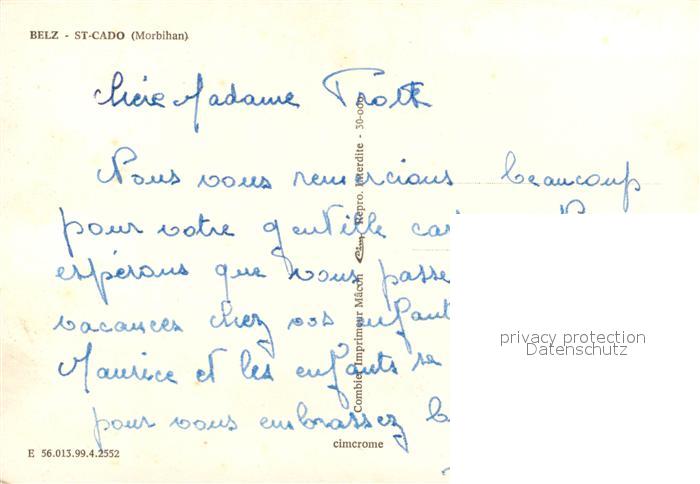 BELZ - ST-CADO (Morbihan)
Chère Madame
Nous vous remercions beaucoup
pour votre gentille
espérons que vous passe
vacances chez vos enfant
Maurice et les enfants se
pour vous embrassez
Combier Imprimeur Mâcon Cim Repro. Interdite - 30-000
cimcrome
E 56.013.99.4.2552
privacy protection
Datenschutz